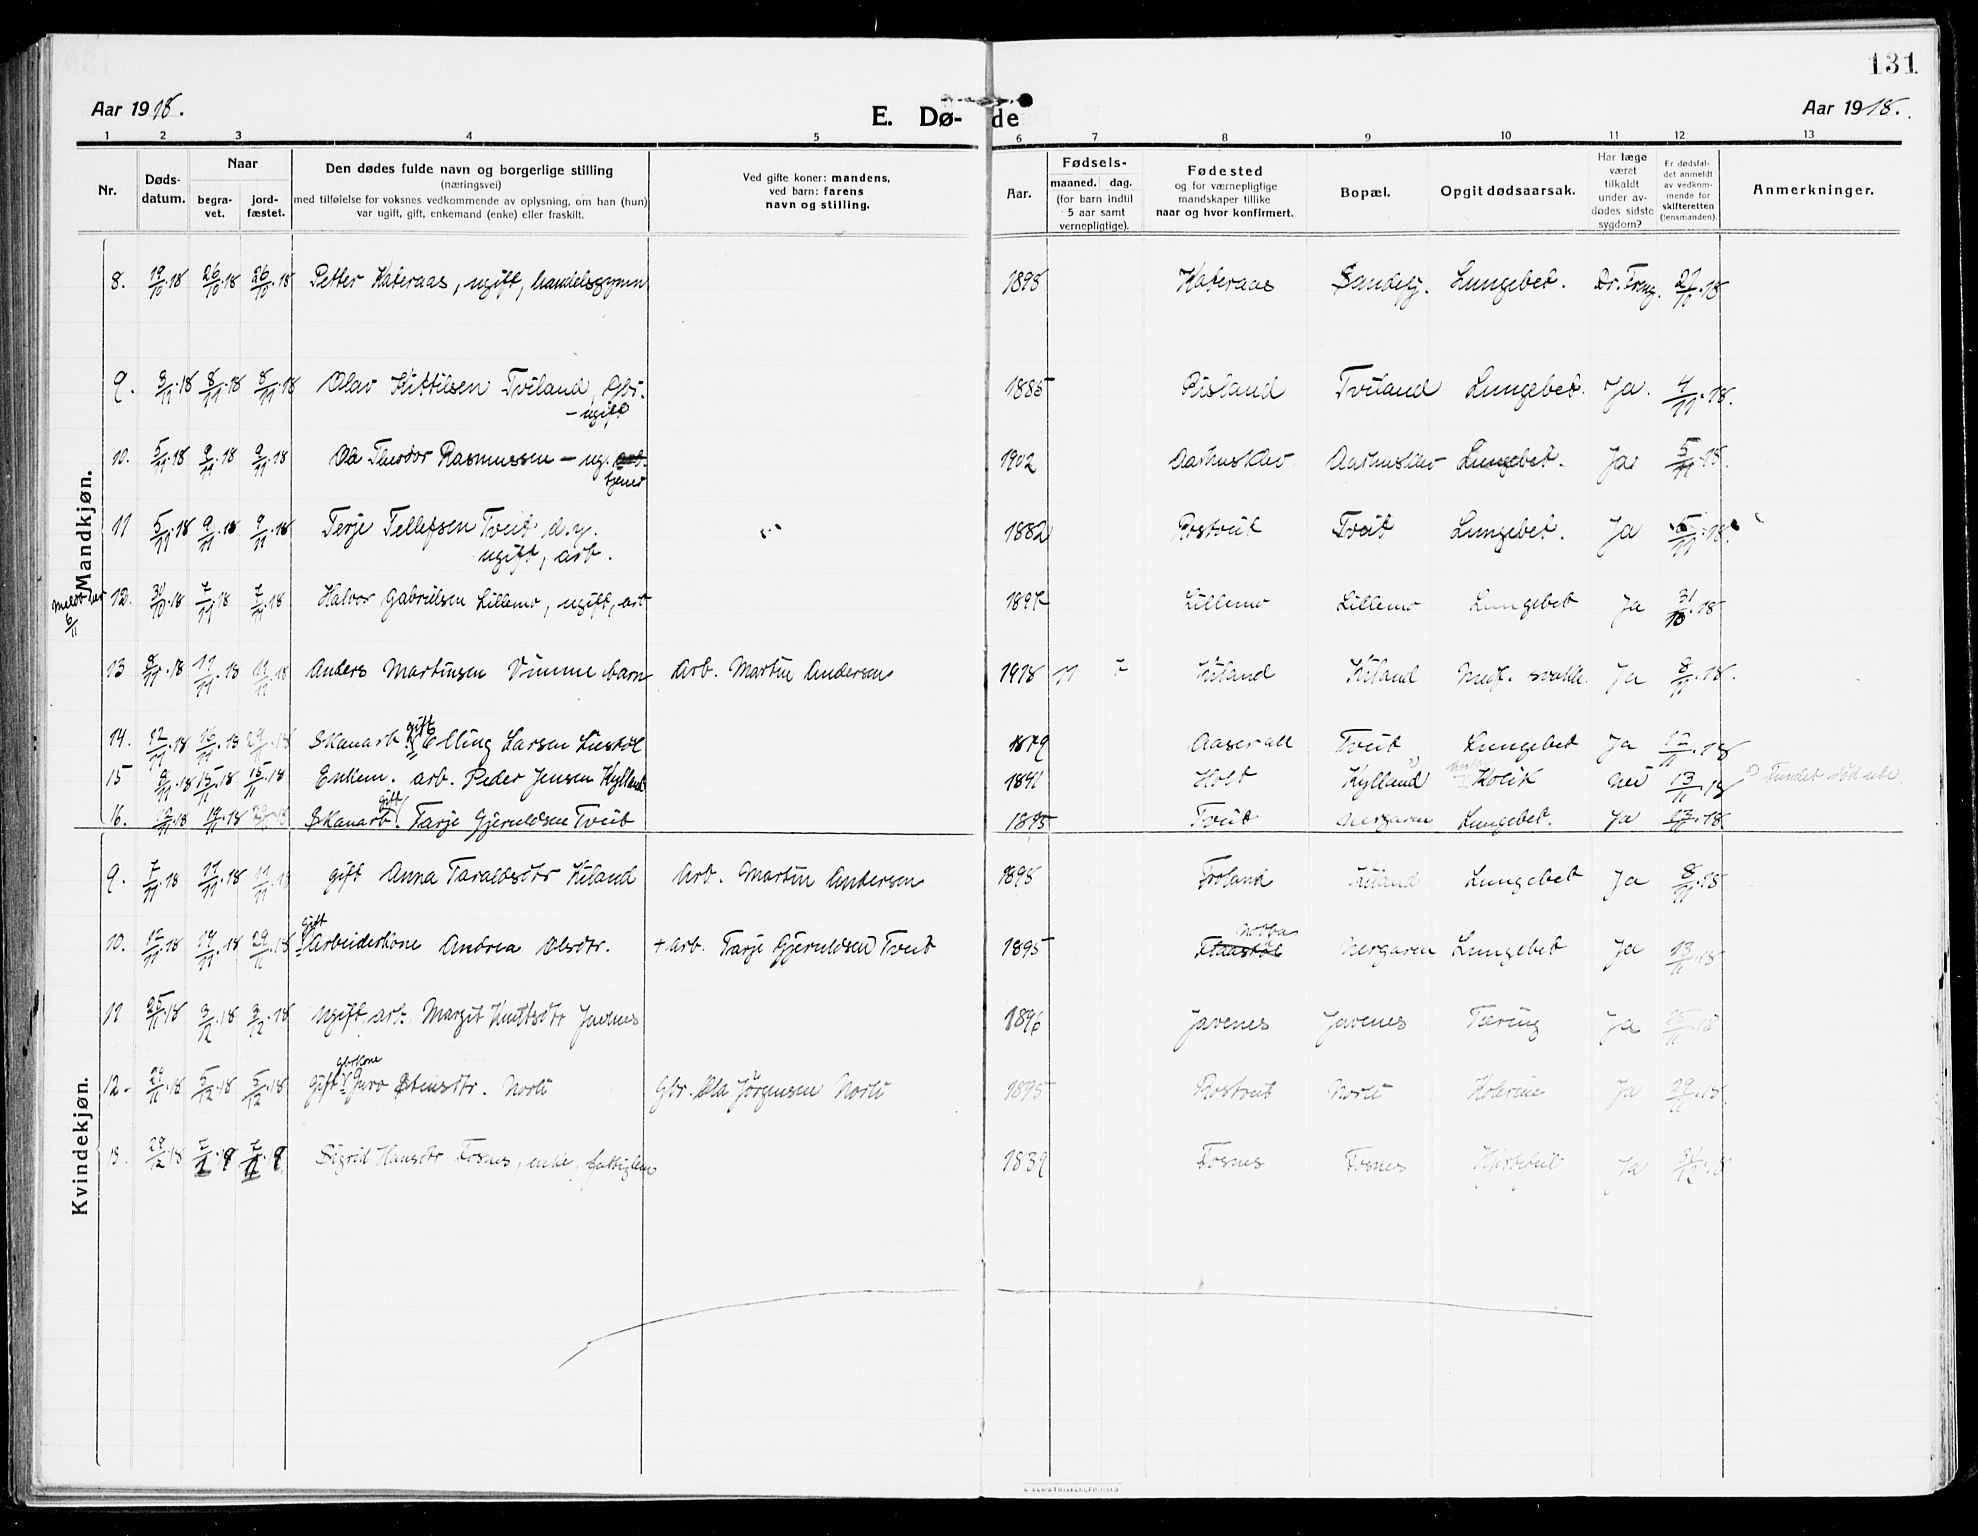 131
Aar 1918.
E. Dø- de
Aar 1918.
1 2 3 4 5 6 7 8 9 10 11 12 13
Nr.
Døds-
datum.
Naar
begra-
vet.
jord-
fæstet.
Den dødes fulde navn og borgerlige stilling
(næringsvei)
med tilføielse for voksnes vedkommende av oplysning, om han (hun)
var ugift, gift, enkemand (enke) eller fraskilt.
Ved gifte koner: mandens,
ved barn: farens
navn og stilling.
Aar.
Fødsels-
maaned. dag.
(for barn indtil
5 aar samt
vernepligtige).
Fødested
og for værnepligtige
mandskaper tillike
naar og hvor konfirmert.
Bopæl.
Opgit dødsaarsak.
Har læge
været
tilkaldt
under av-
dødes sidste
sygdom?
Er dødsfal-
det anmeldt
av vedkom-
mende for
skifteretten
(lensmanden).
Anmerkninger.
Mandkjøn.
8. 19/10.18 26/10.18 26/10.18 Petter Kateraas, ugift, handelsgymn 1898 Kateraas Sandefj. Lungebet. 27/10.18
9. 3/11.18 8/11.18 8/11.18 Olav Kittilsen Tviland, Gbr. 1885 Risland Tviland Lungebet. Ja. 4/11.18.
- ugift
10. 5/11.18 9/11.18 9/11.18 Ola Theodor Rasmussen - ug. arb. 1902 Aarhusklev Aarhusklev Lungebet. Ja 5/11.18.
tjener
11 5/11.18 9/11.18 9/11.18 Terje Tellefsen Tveit d.y. 1882 Rostveit Tveit Lungebet. Ja 5/11.18.
ugift, arb.
meldt her
6/11
12. 30/10.18 7/11.18 7/11.18 Halvor Gabrielsen Lillemo, ugift, arb 1897 Lillemo Lillemo Lungebet Ja 31/10.18
13 8/11.18 11/11.18 11/11.18 Anders Martinsen Vimme barn Arb. Martin Andersen 1918 11 7 Kiland Kiland Medf. svakh. Ja 8/11.18.
gift
14. 12/11.18 16/11.18 29/11.18 Skanarb. Elling Larsen 1879 Aaseral Tveit Lungebet Ja 12/11.18
15 9/11.18 15/11.18 15/11.18 Enkem. arb. Peder Jensen Kylland 1841 Holt Kylland Kolik Nei 13/11.18 Fundet død ute.
gift
16. 12/11.18 19/11.18 29/11.18 Skanarb. Tarje Gjeruldsen Tveit 1895 Tveit Nergaren Lungebet. Ja 13/11.18
Kvindekjøn.
9. 7/11.18 11/11.18 11/11.18 gift Anna Taraldsdtr Kiland Arb. Martin Andersen 1898 Froland Kiland Lungebet Ja 8/11.18
gift
10. 12/11.18 19/11.18 29/11.18 Arbeiderkone Andrea Olsdtr. + arb. Tarje Gjeruldsen Tveit 1895 Nergaren Lungebet Ja 13/11.18
11 25/11.18 3/12.18 3/12.18 ugift, arb. Margit Knutsdtr Javenes 1896 Javenes Javenes Tæring Ja 25/11.18
gbrkone
12. 29/11.18 5/12.18 5/12.18 gift Guro Steinsdtr. Norli Gbr. Ola Jørgensen Norli 1895 Rostveit Norli Kolerine Ja 29/11.18
13. 28/12.18 7/1.19 7/1.19. Sigrid Hansdtr Fosnes, enke, fattiglem 1839 Fosnes Fosnes Hjertefeil Ja 31/12.18